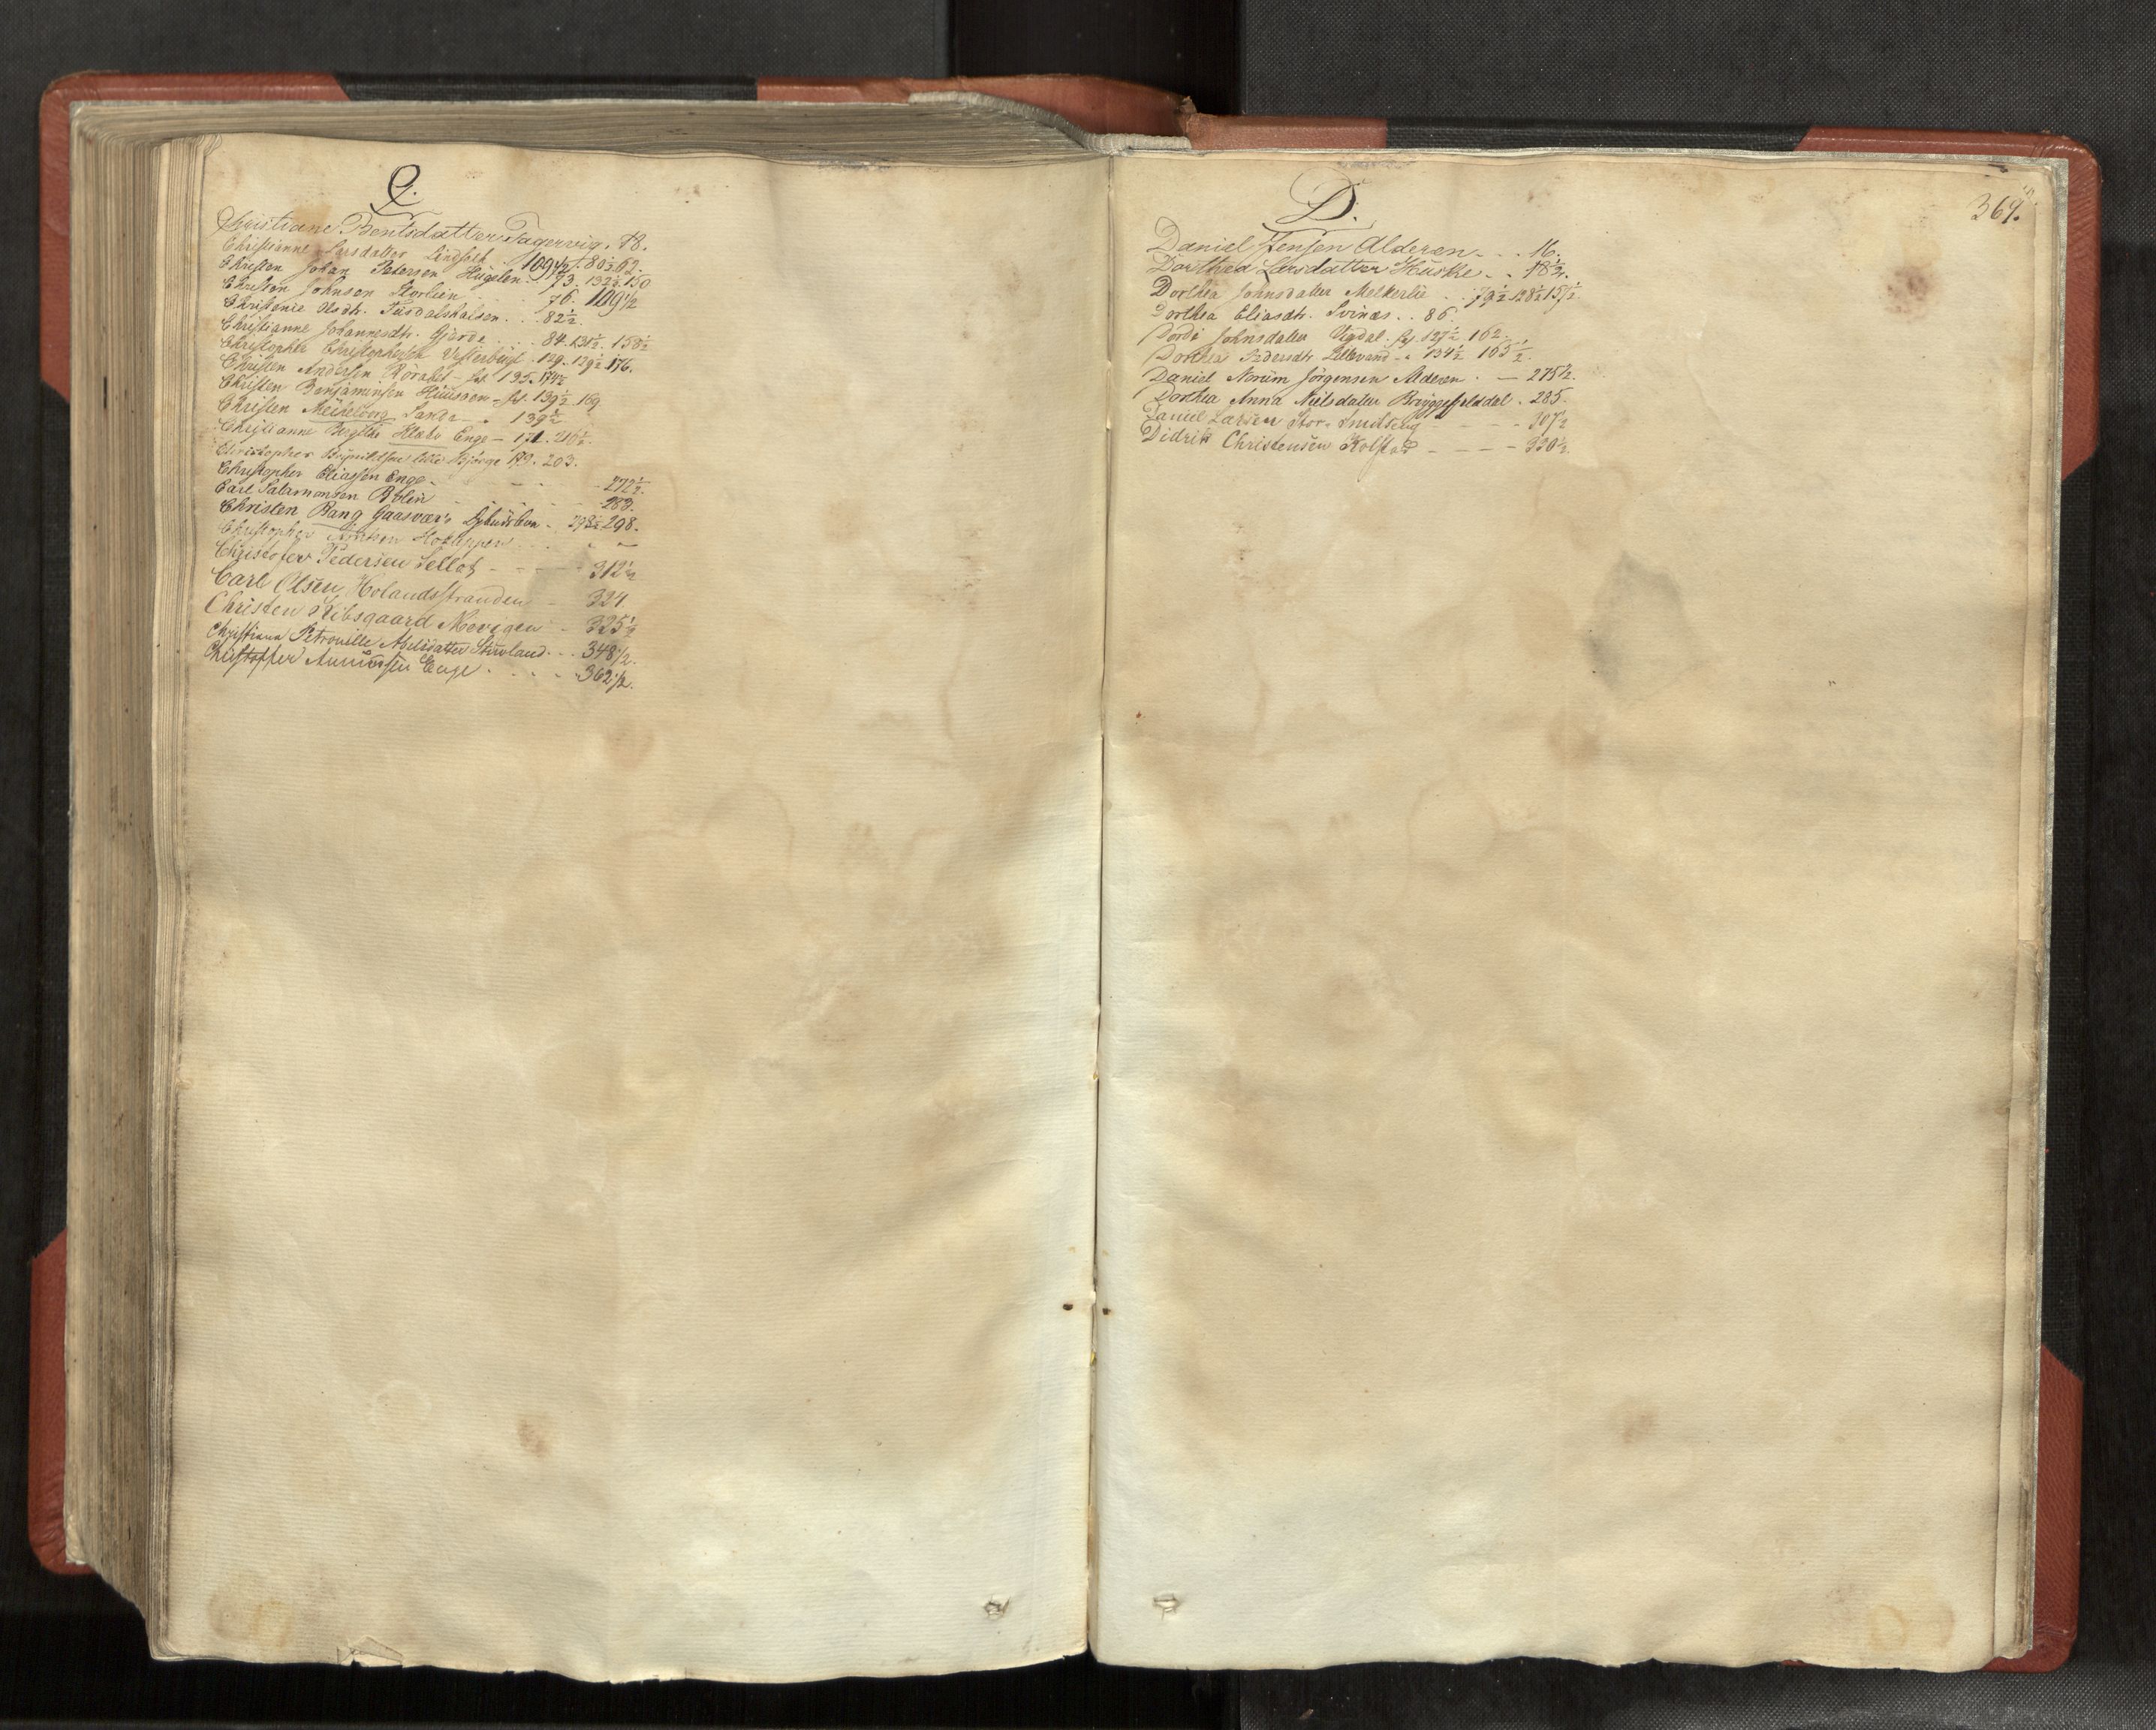 C.
Christiane Bentsdatter Fagervig. 78.
Christianne Larsdatter Lindseth . 109 1/2. 80 1/2. 62.
Christen Johan Petersen Hügelen. 73. 132 1/2. 150
Christen Johnsen Storlien . . . 76. 109 1/2
Christence Olsdtr. Fusdalshalsen. . . 82 1/2.
Christianne Johannesdtr. Gjerde . . . 84. 131 1/2. 158 1/2
Christopher Christophersen Vesterbeigt. 129. 129 1/2. 176.
Christen Andersen Röraket - fol. 135. 174 1/2
Christen Benjaminsen Huusoen - fol. 139 1/2. 169
Christen Mechelborg Sande - . 139 1/2
Christianne Bergithe Enge - 171. 216 1/2.
Christopher Lille Bjerge 179. 203.
Christopher Eliassen Enge - - - - 272 1/2.
Carl Salamonsen Bolin - - - 283.
Christen Bang Gaasvær - 298.
Christopher
Christofer Pedersen Sellot - - - - 312 1/2
Carl Olsen Holandsstranden - 324.
Christen Kibsgaard Nevigen - 325 1/2
Christiana Petronille Stuvland . . . 348 1/2.
Christoffer Enge . . . . . 362 1/2.
D.
369.
Daniel Jensen Alderen . . . 16.
Dorthea Larsdatter Huske . . 78 1/2.
Dorthea Johnsdatter Melkerlie . . 79 1/2 128 1/2 157 1/2.
Dorthea Eliasdtr. Svinæs . . 86.
Dordi Johnsdatter Ugdal. fol. 127 1/2. 162.
Dorthea Pedersdtr. Lillevand - 134 1/2. 165 1/2.
Daniel Norum Jörgensen Alderen . - 275 1/2.
Dorthea Anna Nielsdatter Bryggefjelddal . 285.
Daniel Larsen Stor - - - 307 1/2
Didrik Christensen Kolstad - - - - 330 1/2.